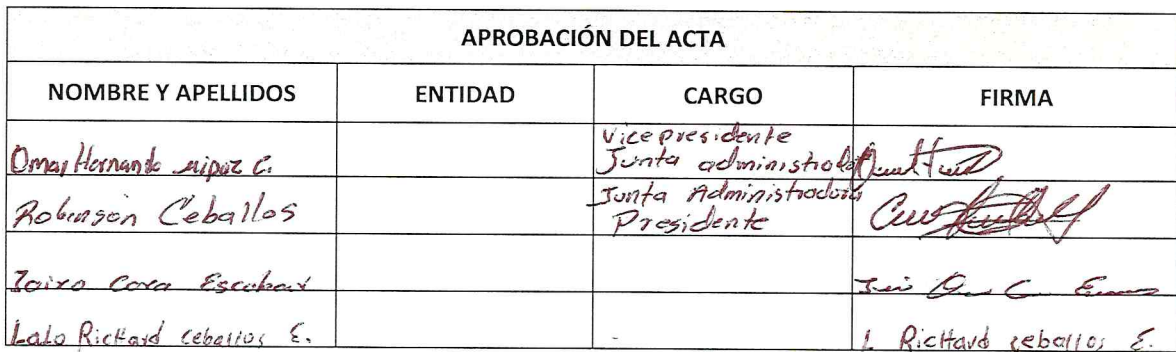 APROBACIÓN DEL ACTA
NOMBRE Y APELLIDOS ENTIDAD CARGO FIRMA
Omar Hernando C. Vicepresidente
Junta administradora
Robinson Ceballos Junta Administradora
Presidente
Jairo Escobar
Lalo Richard ceballos E. L Richard ceballos E.